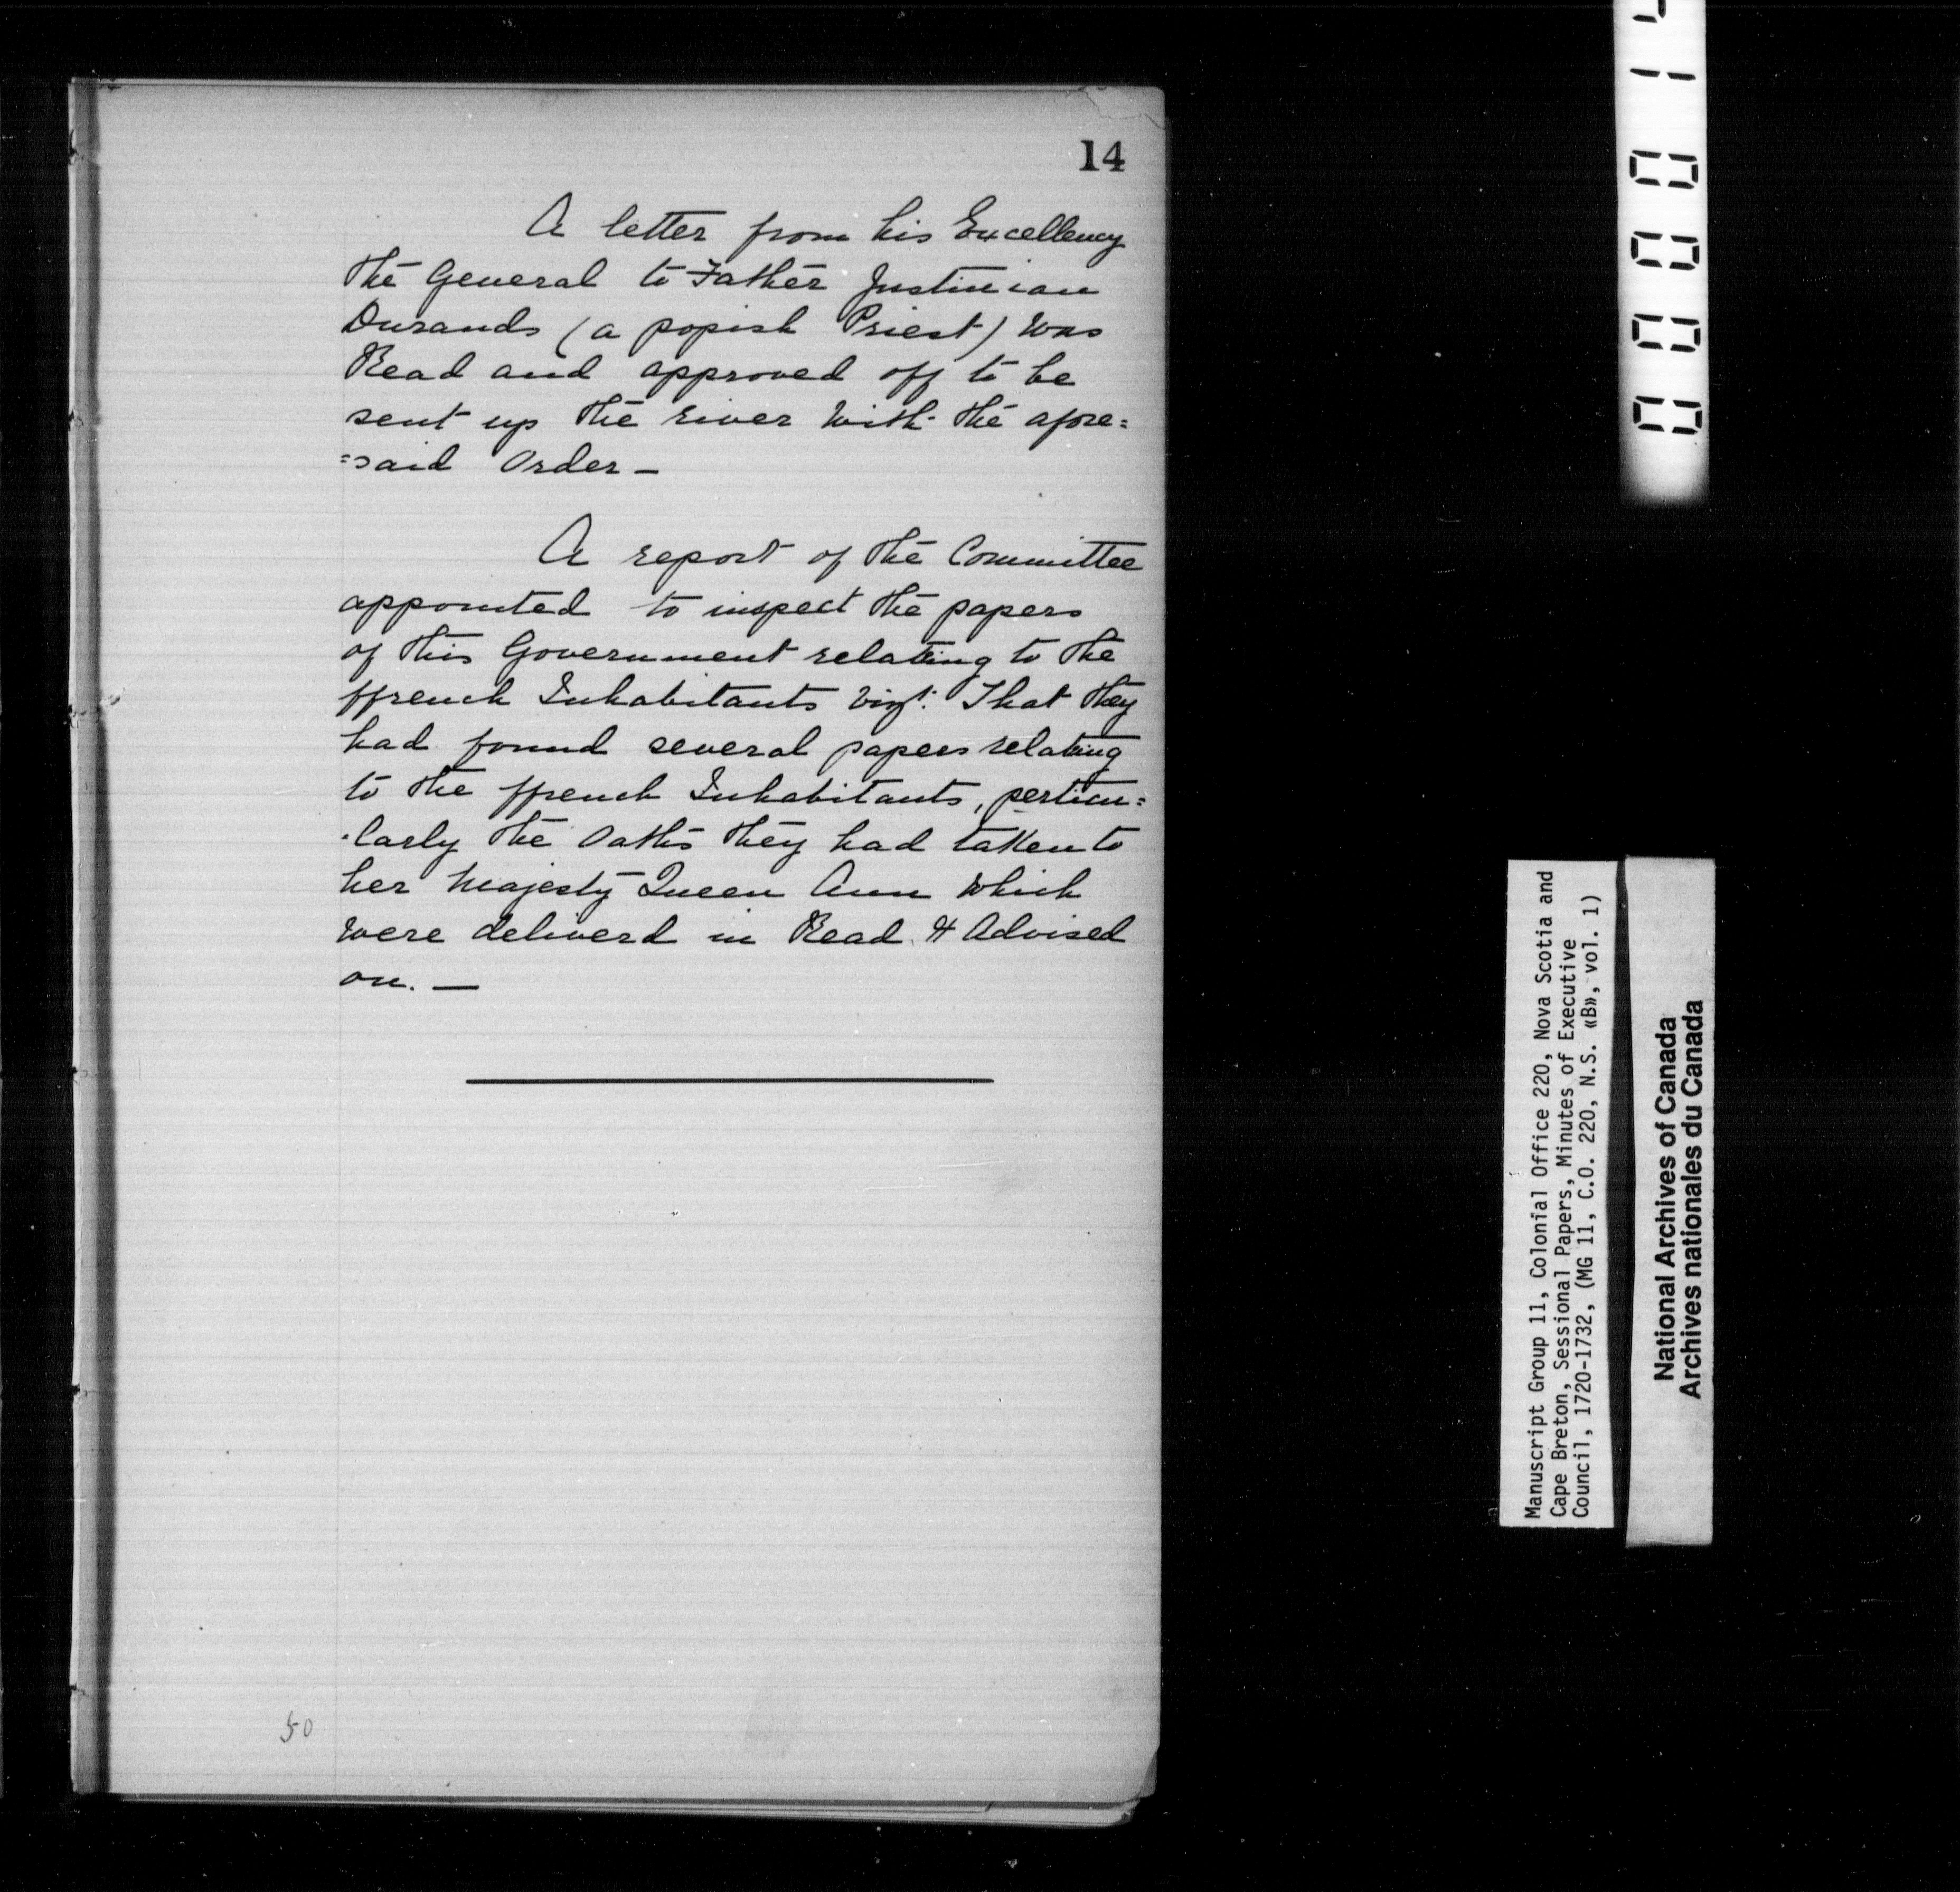 14
A letter from his Excellency
the General to Father Justinian
Durands (a popish Priest) was
Read and approved off to be
sent up the river with the afore=
=said Order —
A report of the Committee
appointed to inspect the papers
of this Government relating to the
ffrench Inhabitants vizt. That they
had found several papers relating
to the ffrench Inhabitants, perticu=
-larly the Oaths they had taken to
her Majesty Queen Ann which
were deliverd in Read & Advised
on. —
50
Manuscript Group 11, Colonial Office 220, Nova Scotia and
Cape Breton, Sessional Papers, Minutes of Executive
Council, 1720-1732, (MG 11, C.O. 220, N.S. «B», vol. 1)
National Archives of Canada
Archives nationales du Canada